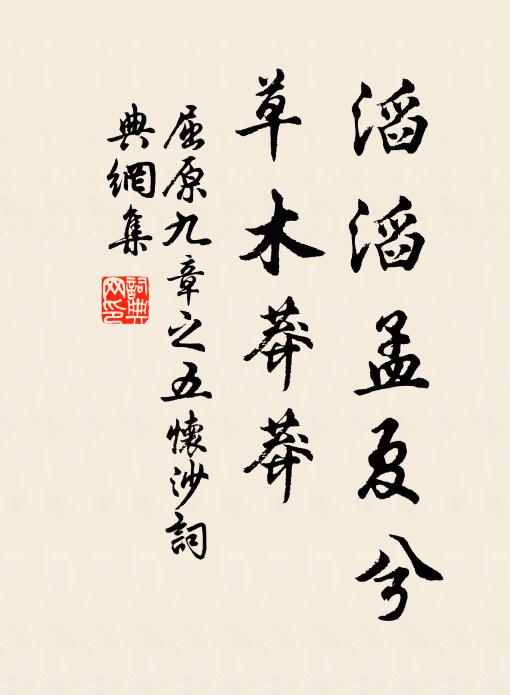 滔滔孟夏兮
草木莽莽
屈原九章之五懷沙詞
典網集
詞典网印